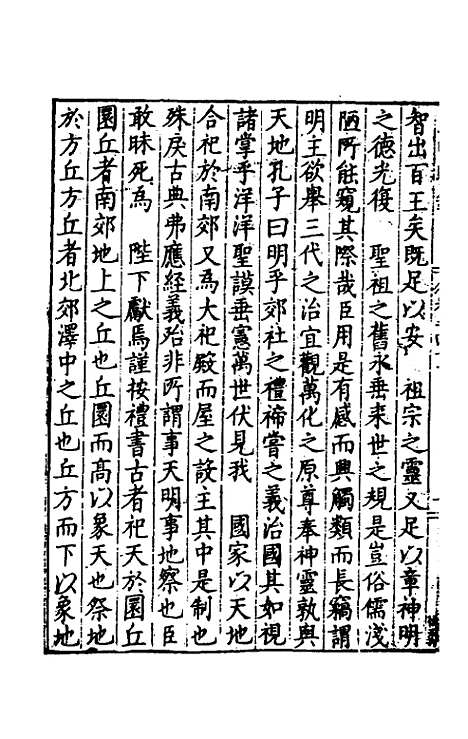 智出百王矣既足以安　祖宗之靈又足以章神明
之德光復　聖祖之舊永垂来世之規是豈俗儒淺
陋所能窺其際哉臣用是有感而興觸類而長竊謂
明主欲舉三代之治宜觀萬化之原尊奉神靈孰與
天地孔子曰明乎郊社之禮禘嘗之義治國其如視
諸掌乎洋洋聖謨垂憲萬世伏見我　國家以天地
合祀於南郊又為大祀殿而屋之設主其中是制也
殊戾古典弗應経義殆非所謂事天明事地察也臣
敢昧死為　陛下獻焉謹按禮書古者祀天於圜丘
圜丘者南郊地上之丘也丘圜而髙以象天也祭地
於方丘方丘者北郊澤中之丘也丘方而下以象地